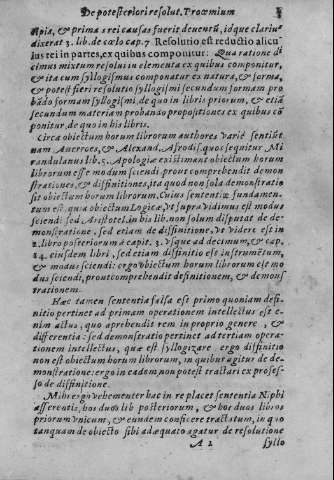 De posteriori resolut. Proœmium
lipia, & prima rei causas fuerit deuentũ, id que clariu'
dixerat 3. lib. de cœlo cap. 7. Resolutio est reductio alicu
ius rei in partes, ex quibus componitur: Qua ratione di
cimus mixtum resolui in elementa ex quibus componitur,
& ita cum syllogismus componatur ex natura, & forma,
& potest fieri resolutio syllogismi secundum formam pro
bãdo formam syllogismi, de quo in libris priorum, & etiã
secundum materiam probando propositiones ex quibus cõ
ponitur, de quo in his libris.
Circa obiectum horum librorum authores varie sentiũt
nam Auerroes, & Alexand. Afrodis. quos sequitur Mi
randulanus lib. 5. Apologiæ existimant obiectum horum
librorum esse modum sciendi prout comprehendit demon
strationes, & diffinitiones, ita quod non sola demonstratio
sit obiectum horum librorum. Cuius sententiæ fundamen-
tum est. quia obiectum Logicæ, vt supra vidimus est modus
sciendi: sed Aristotel. in his lib. non solum disputat de de-
monstratione, sed etiam de diffinitione, vt videre est in
2. libro posteriorum à capit. 3. vsque ad decimum, & cap.
14. eiusdem libri, sed etiam diffinitio est instrumẽtum,
& modus sciendi: ergo obiectum horum librorum est mo
dus sciendi, prout comprehendit definitionem, & demons
trationem.
Hæc tamen sententia falsa est primo quoniam defi-
nitio pertinet ad primam operationem intellectus est e-
nim actus, quo aprehendit rem in proprio genere, &
differentia: sed demonstratio pertinet ad tertiam opera-
tionem intellectus, quæ est syllogizare: ergo diffinitio
non est obiectum horum librorum, in quibus agitur de de-
monstratione: ergo in eadem non potest tractari ex profes-
so de diffinitione.
Mihi ergo vehementer hac in re placet sententia Niphi
asserentis, hos duos lib. posteriorum, & hos duos libros
priorum vnicum, & eundem conficere tractatum, in quo
tanquam de obiecto sibi adæquato agatur de resolutione
A 2 syllo